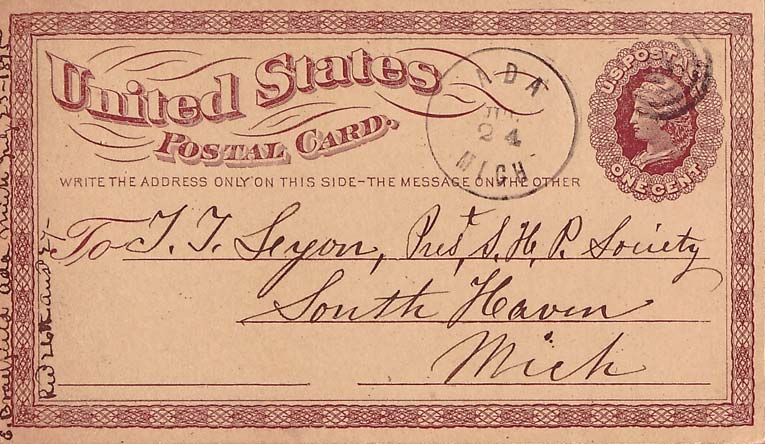 United States
POSTAL CARD.
WRITE THE ADDRESS ONLY ON THIS SIDE—THE MESSAGE ON THE OTHER
ADA
24
MICH
U.S. POSTAGE
ONE CENT
To T. T. Lyon, Prest, S. H. P. Society
South Haven
Mich
Ada Mich July 23-1875
Recd 26th and